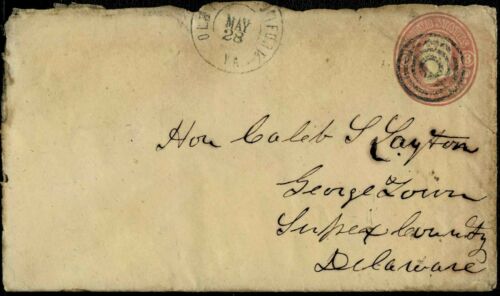 OLD
MAY
28
VA.
Hon Caleb S Layton
George Town
Sussex County
Delaware